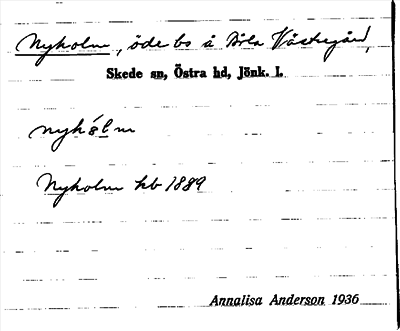 Nyholm, öde bs å Böla Västregård,
Skede sn, Östra hd, Jönk. l.
nyhólm
Nyholm kb 1889
Annalisa Anderson 1936